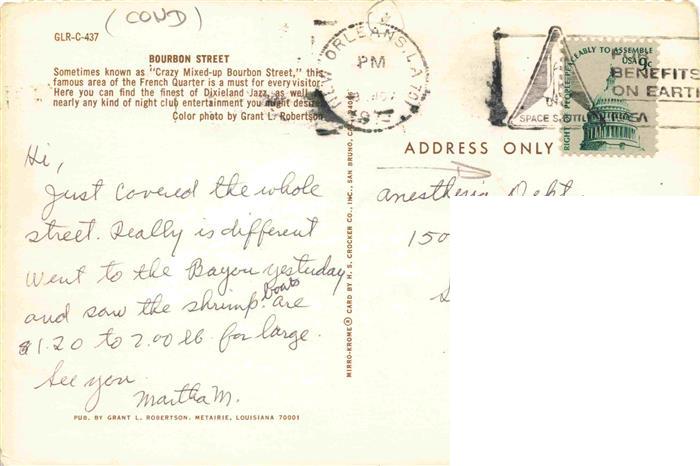 (COND)
GLR-C-437
BOURBON STREET
Sometimes known as "Crazy Mixed-up Bourbon Street," this
famous area of the French Quarter is a must for every visitor.
Here you can find the finest of Dixieland Jazz, as well as
nearly any kind of night club entertainment you might desire.
Color photo by Grant L. Robertson
Hi,
Just covered the whole
street. Really is different
Went to the Bayou yestuday
and saw the shrimp boats are
$1.20 to 2.00 lb. for large.
See you
Martha M.
PUB. BY GRANT L. ROBERTSON, METAIRIE, LOUISIANA 70001
MIRRO-KROME® CARD BY H. S. CROCKER CO., INC., SAN BRUNO, CA.
NEW ORLEANS, LA
PM
SPACE SHUTTLE
BENEFITS
ON EARTH
USA 9c
RIGHT OF PEOPLE
EABLY TO ASSEMBLE
ADDRESS ONLY
Anesthesia Dept.
150